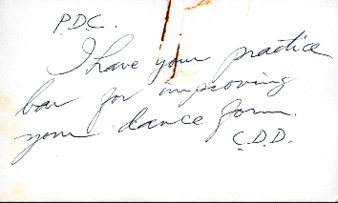 P.D.C.
I have your practice
bar for improving
your dance form.
C.D.D.